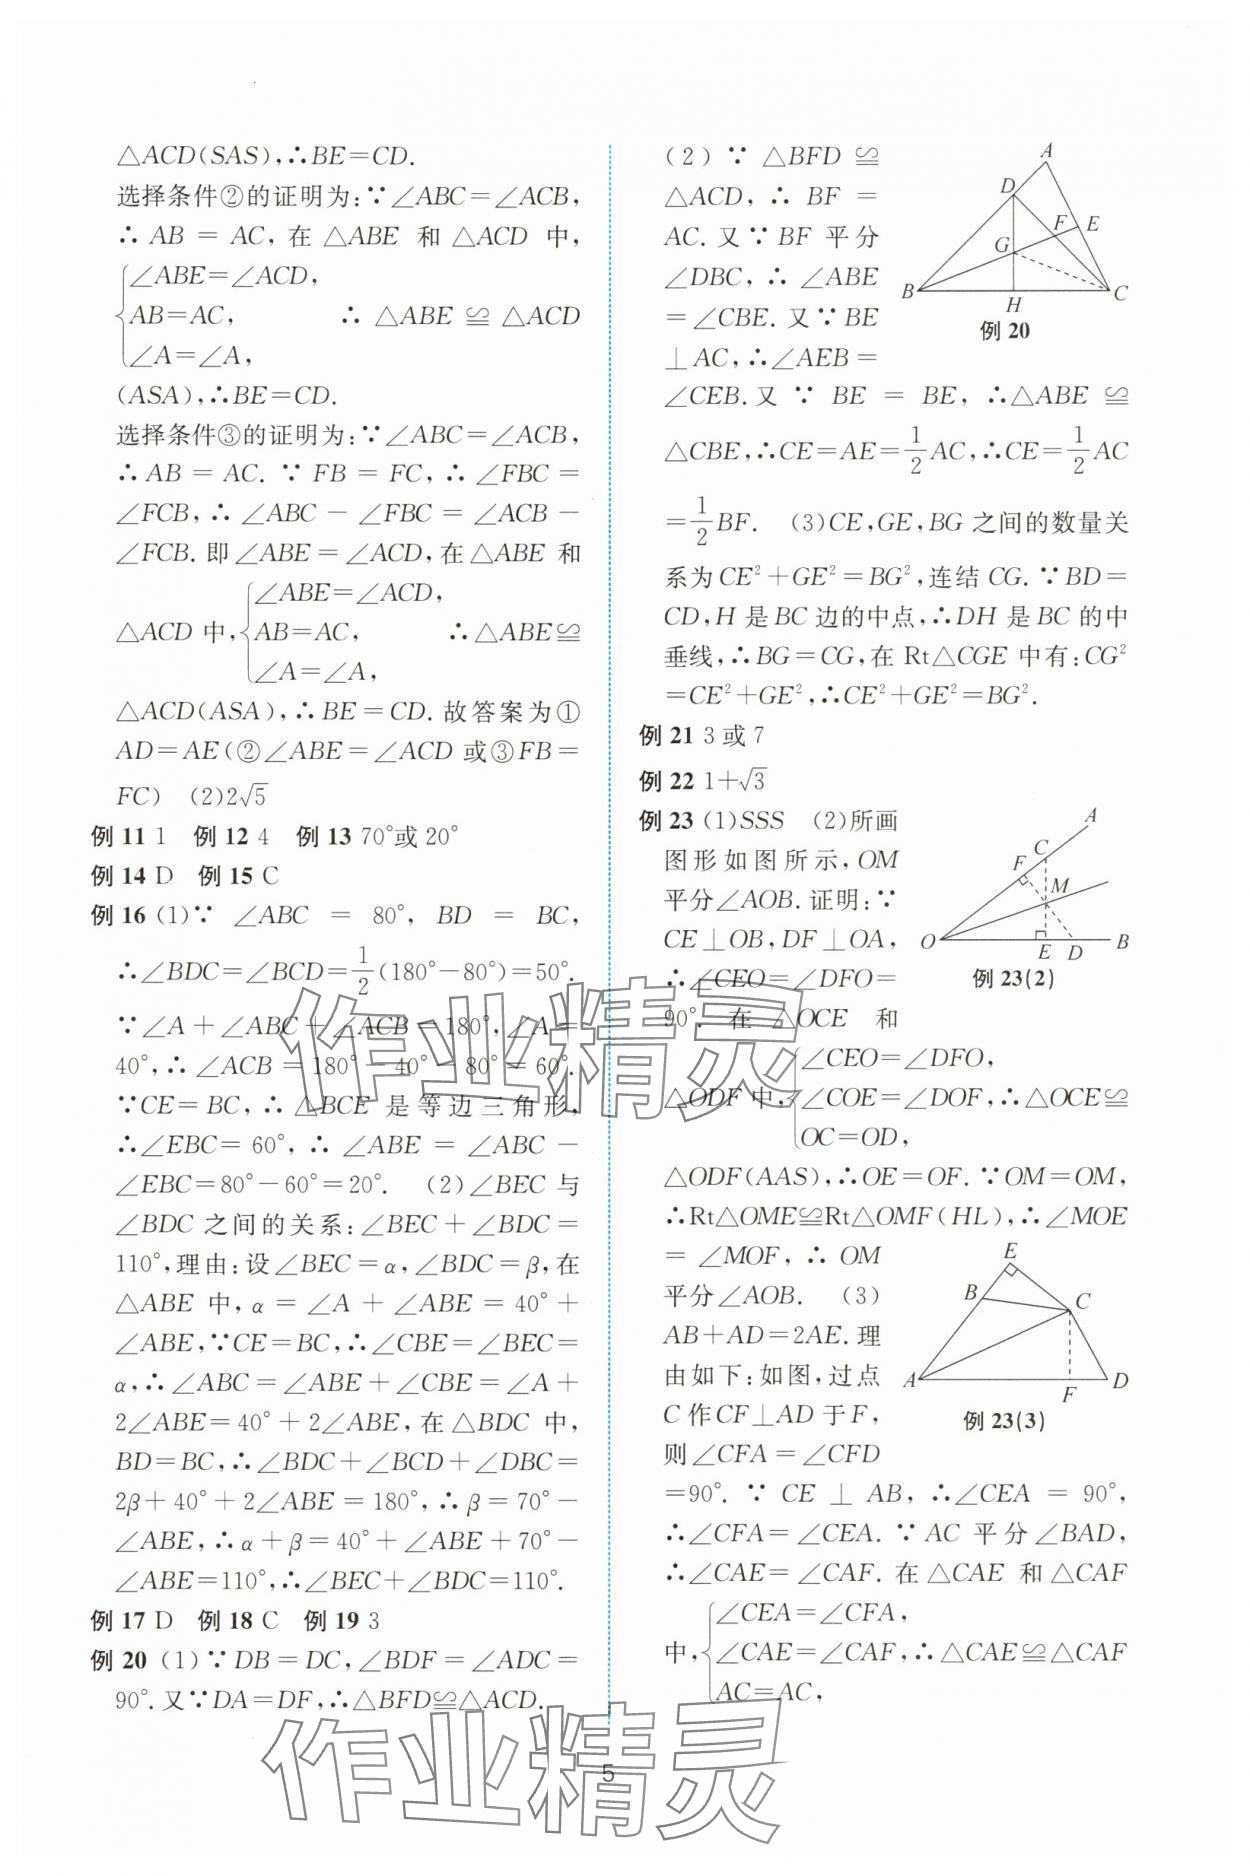 △ACD(SAS),∴BE=CD.
选择条件②的证明为:∵∠ABC=∠ACB,
∴AB=AC,在△ABE和△ACD中,
∠ABE=∠ACD,
AB=AC, ∴△ABE≌△ACD
∠A=∠A,
(ASA),∴BE=CD.
选择条件③的证明为:∵∠ABC=∠ACB,
∴AB=AC.∵FB=FC,∴∠FBC=
∠FCB,∴∠ABC-∠FBC=∠ACB-
∠FCB.即∠ABE=∠ACD,在△ABE和
∠ABE=∠ACD,
△ACD中, AB=AC, ∴△ABE≌
∠A=∠A,
△ACD(ASA),∴BE=CD.故答案为①
AD=AE(②∠ABE=∠ACD或③FB=
FC) (2)2√5
例11 1 例12 4 例13 70°或20°
例14 D 例15 C
例16 (1)∵∠ABC=80°,BD=BC,
∴∠BDC=∠BCD=1/2(180°-80°)=50°.
∵∠A+∠ABC+∠ACB=180°,∠A=
40°,∴∠ACB=180°-40°-80°=60°.
∵CE=BC,∴△BCE是等边三角形,
∴∠EBC=60°,∴∠ABE=∠ABC-
∠EBC=80°-60°=20°. (2)∠BEC与
∠BDC之间的关系:∠BEC+∠BDC=
110°,理由:设∠BEC=α,∠BDC=β,在
△ABE中,α=∠A+∠ABE=40°+
∠ABE,∵CE=BC,∴∠CBE=∠BEC=
α,∴∠ABC=∠ABE+∠CBE=∠A+
2∠ABE=40°+2∠ABE,在△BDC中,
BD=BC,∴∠BDC+∠BCD+∠DBC=
2β+40°+2∠ABE=180°,∴β=70°-
∠ABE,∴α+β=40°+∠ABE+70°-
∠ABE=110°,∴∠BEC+∠BDC=110°.
例17 D 例18 C 例19 3
例20 (1)∵DB=DC,∠BDF=∠ADC=
90°.又∵DA=DF,∴△BFD≌△ACD.
(2)∵△BFD≌
△ACD,∴BF=
AC.又∵BF平分
∠DBC,∴∠ABE
=∠CBE.又∵BE
⊥AC,∴∠AEB=
A
D
F
E
G
B
H
C
例20
∠CEB.又∵BE=BE,∴△ABE≌
△CBE,∴CE=AE=1/2AC,∴CE=1/2AC
=1/2BF. (3)CE,GE,BG之间的数量关
系为CE²+GE²=BG²,连结CG.∵BD=
CD,H是BC边的中点,∴DH是BC的中
垂线,∴BG=CG,在Rt△CGE中有:CG²
=CE²+GE²,∴CE²+GE²=BG².
例21 3或7
例22 1+√3
例23 (1)SSS (2)所画
图形如图所示,OM
平分∠AOB.证明:∵
CE⊥OB,DF⊥OA,
∴∠CEO=∠DFO=
90°.在△OCE和
A
C
F
M
O
E
D
B
例23(2)
∠CEO=∠DFO,
△ODF中, ∠COE=∠DOF,∴△OCE≌
OC=OD,
△ODF(AAS),∴OE=OF.∵OM=OM,
∴Rt△OME≌Rt△OMF(HL),∴∠MOE
=∠MOF,∴OM
平分∠AOB. (3)
AB+AD=2AE.理
由如下:如图,过点
C作CF⊥AD于F,
则∠CFA=∠CFD
E
B
C
A
F
D
例23(3)
=90°.∵CE⊥AB,∴∠CEA=90°,
∴∠CFA=∠CEA.∵AC平分∠BAD,
∴∠CAE=∠CAF.在△CAE和△CAF
∠CEA=∠CFA,
中, ∠CAE=∠CAF,∴△CAE≌△CAF
AC=AC,
5
作业精灵
作业精灵